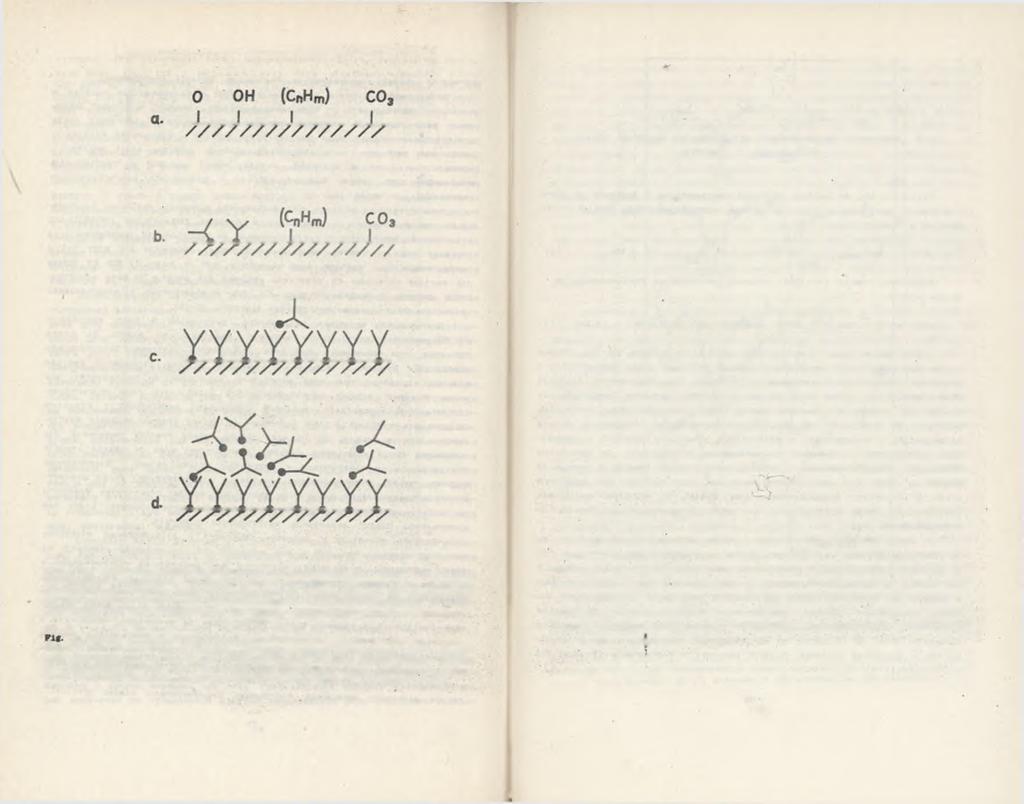 O OH (CnHm) CO₃
a.
b. (CnHm) CO₃
c.
d.
Fig.